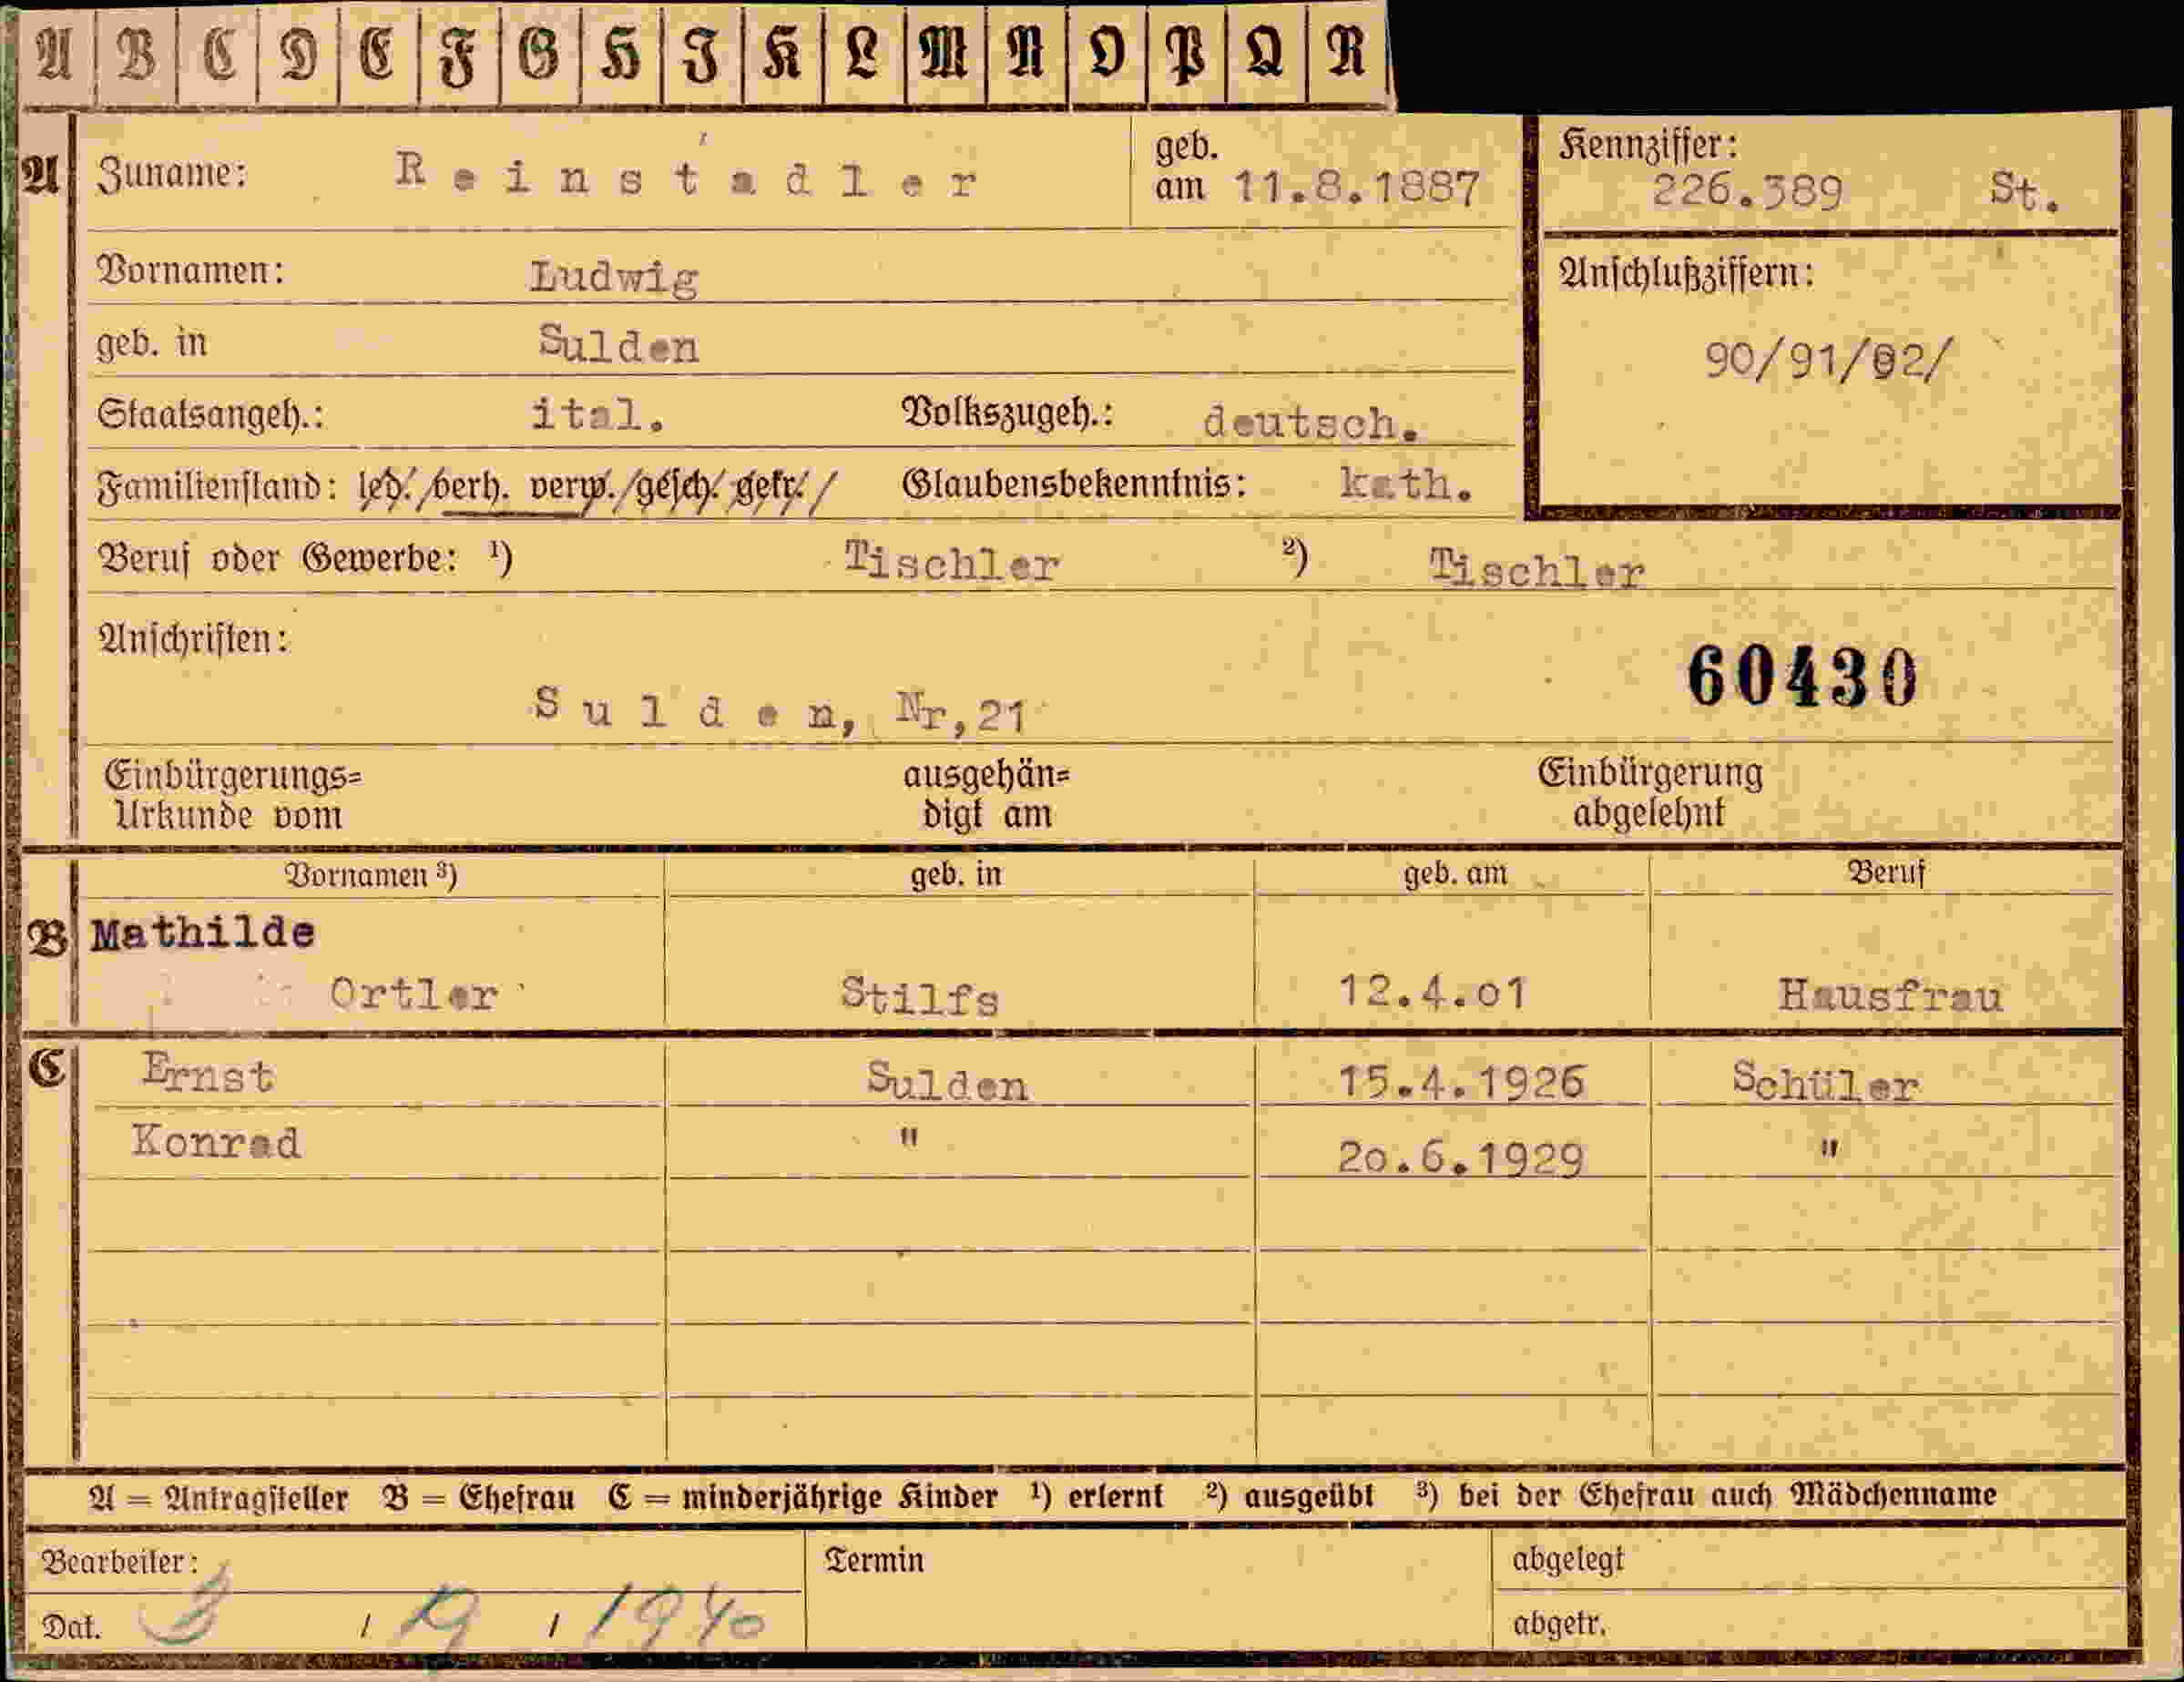 A B C D E F G H I K L M N O P Q R
A Zuname: Reinstadler geb. am 11.8.1887
Kennziffer: 226.389 St.
Vornamen: Ludwig
Anschlußziffern:
90/91/92/
geb. in Sulden
Staatsangeh.: ital. Volkszugeh.: deutsch.
Familienstand: led./verh. verw./gesch./getr./ Glaubensbekenntnis: kath.
Beruf oder Gewerbe: ¹) Tischler ²) Tischler
Anschriften:
60430
Sulden, Nr,21
Einbürgerungs= ausgehän= Einbürgerung
Urkunde vom digt am abgelehnt
Vornamen ³) geb. in geb. am Beruf
B Mathilde
Ortler Stilfs 12.4.01 Hausfrau
C Ernst Sulden 15.4.1926 Schüler
Konrad " 20.6.1929 "
A = Antragsteller B = Ehefrau C = minderjährige Kinder ¹) erlernt ²) ausgeübt ³) bei der Ehefrau auch Mädchenname
Bearbeiter: Termin abgelegt
Dat. 3 / / 1940 abgetr.